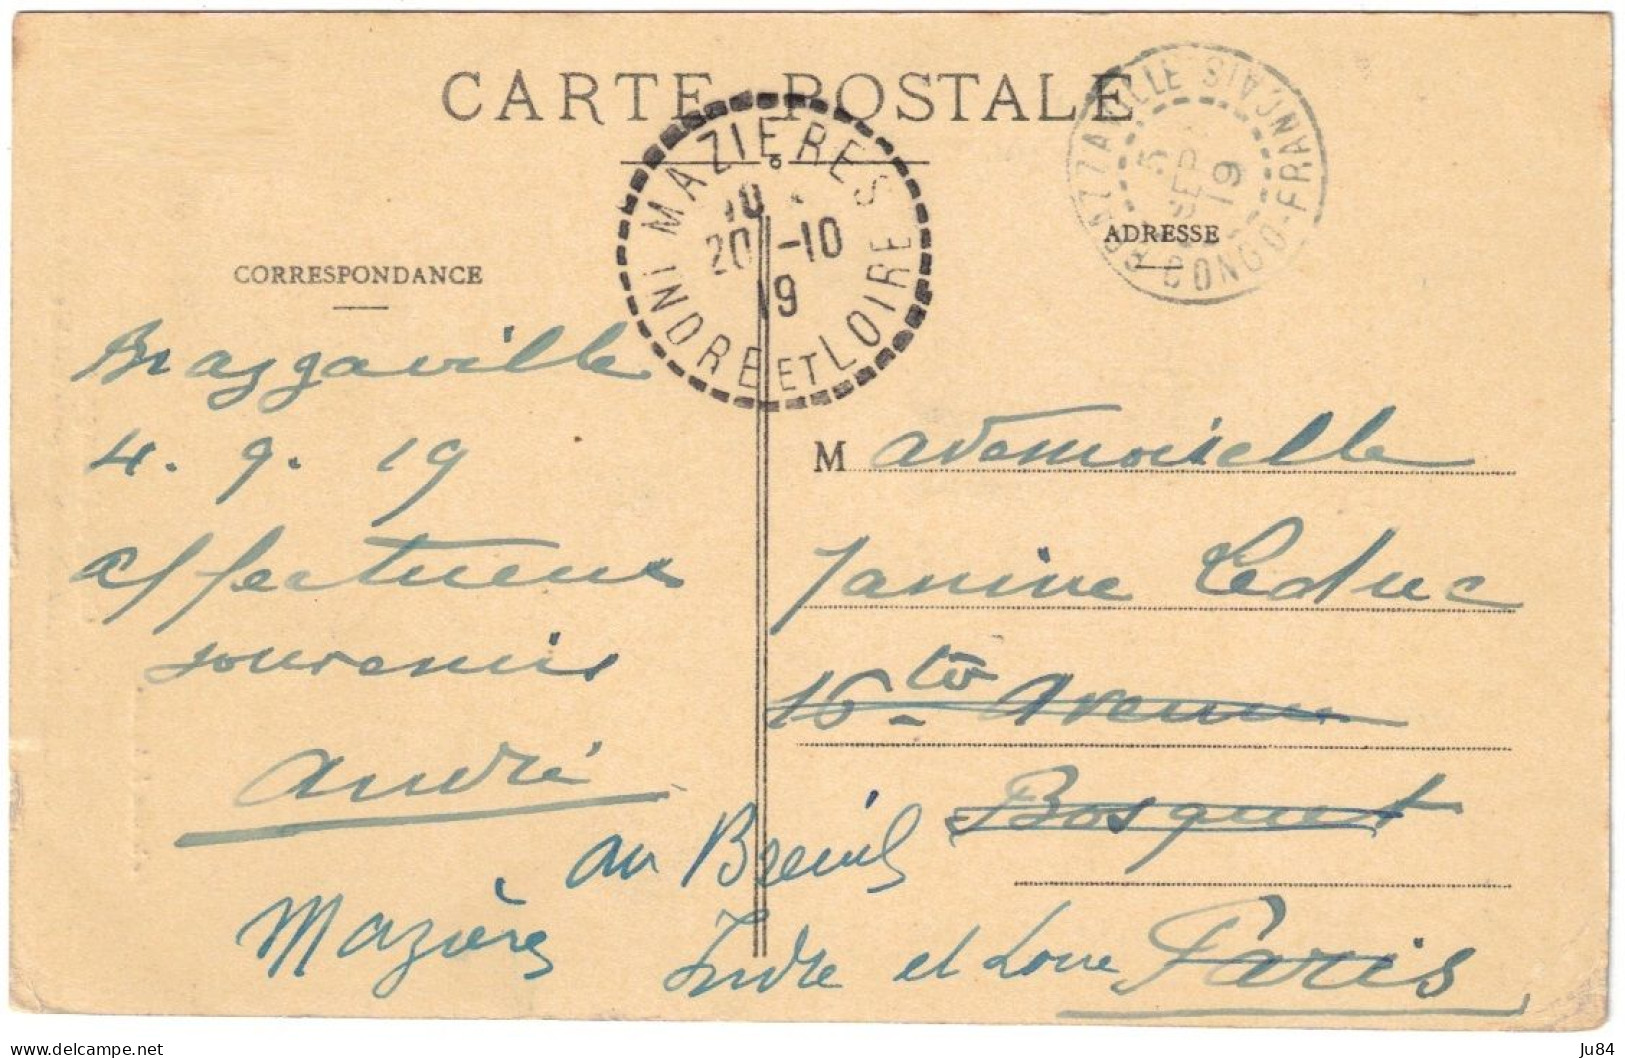 CARTE POSTALE
MAZIERES
10
20-10
19
INDRE ET LOIRE
BRAZZAVILLE
CONGO-FRANÇAIS
5
SEPT
19
CORRESPONDANCE
ADRESSE
Brazzaville
4. 9. 19
affectueux
souvenirs
André
Mademoiselle
Janine Leduc
16 Avenue
Bosquet
Paris
au Breuil
Mazières
Indre et Loire
www.delcampe.net
Ju84